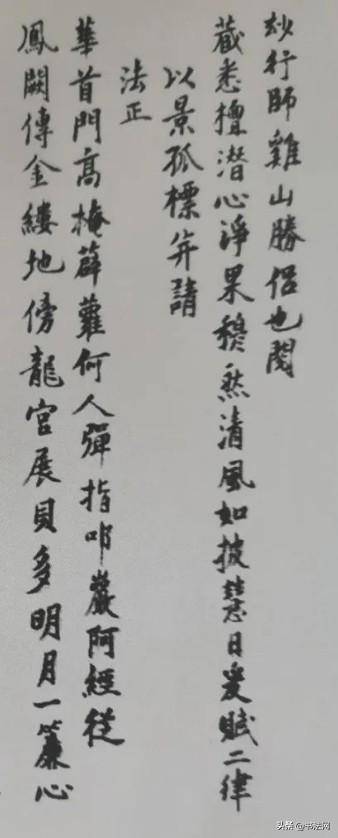 玅行師雞山勝侶也閱
藏悉檀潜心淨果穆然清風如披慧日爰賦二律
以景孤標并請
法正
華首門高掩薜蘿何人彈指叩巖阿經從
鳳闕傳金縷地傍龍宮展貝多明月一簾心
头条 @书法网